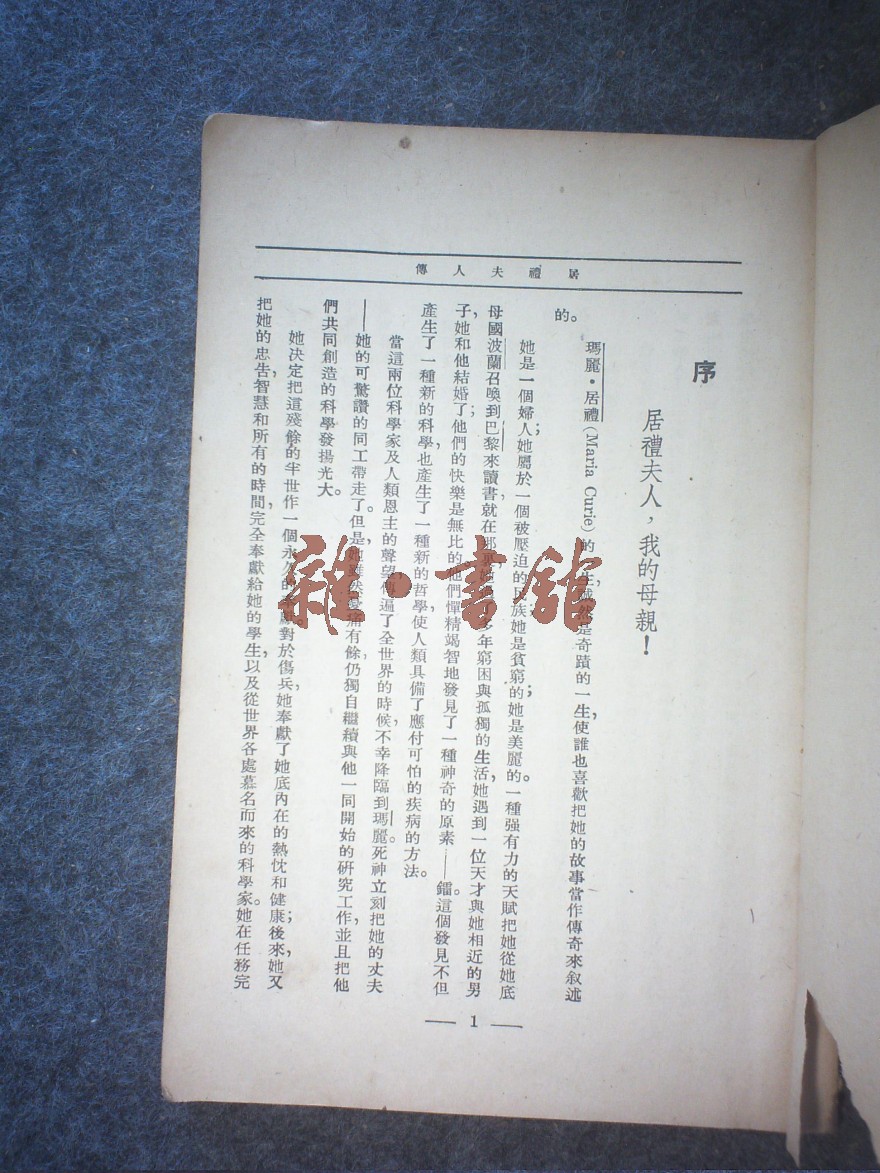 居禮夫人傳
序
居禮夫人，我的母親！
瑪麗・居禮（Maria Curie）的一生，誠然是奇蹟的一生，使誰也喜歡把她的故事當作傳奇來叙述
的。
她是一個婦人；她屬於一個被壓迫的民族她是貧窮的；她是美麗的。一種强有力的天賦把她從她底
母國波蘭召喚到巴黎來讀書，就在那裏她過了多年窮困與孤獨的生活，她遇到一位天才與她相近的男
子，她和他結婚了；他們的快樂是無比的。他們憚精竭智地發見了一種神奇的原素——鐳。這個發見不但
產生了一種新的科學，也產生了一種新的哲學，使人類具備了應付可怕的疾病的方法。
當這兩位科學家及人類恩主的聲望傳遍了全世界的時候，不幸降臨到瑪麗。死神立刻把她的丈夫
——她的可驚讚的同工帶走了。但是，她雖然憂痛有餘，仍獨自繼續與他一同開始的研究工作，並且把他
們共同創造的科學發揚光大。
她决定把這殘餘的半世作一個永久的奉獻。對於傷兵，她奉獻了她底內在的熱忱和健康；後來，她又
把她的忠告，智慧和所有的時間，完全奉獻給她的學生，以及從世界各處慕名而來的科學家。她在任務完
— 1 —
雜・書舘